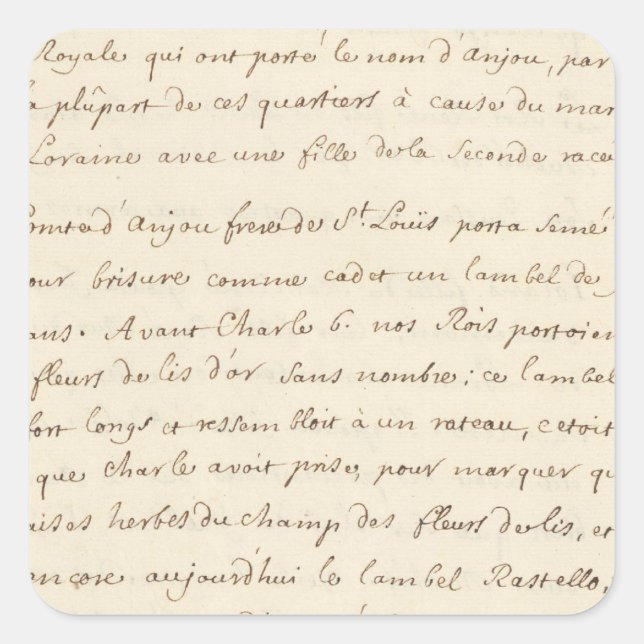 Royale qui ont porté le nom d'Anjou, par
la plûpart de ces quartiers à cause du mar
Loraine avec une fille de la seconde race
omte d'Anjou frere de St. Louïs porta semé
our brisure comme cadet un lambel de
ans. Avant Charle 6. nos Rois portoien
fleurs de lis d'or sans nombre; ce lambel
fort longs et ressembloit à un rateau, c'etoit
que Charle avoit prise, pour marquer qu
aises herbes du champ des fleurs de lis, et
encore aujourd'hui le lambel Rastello,